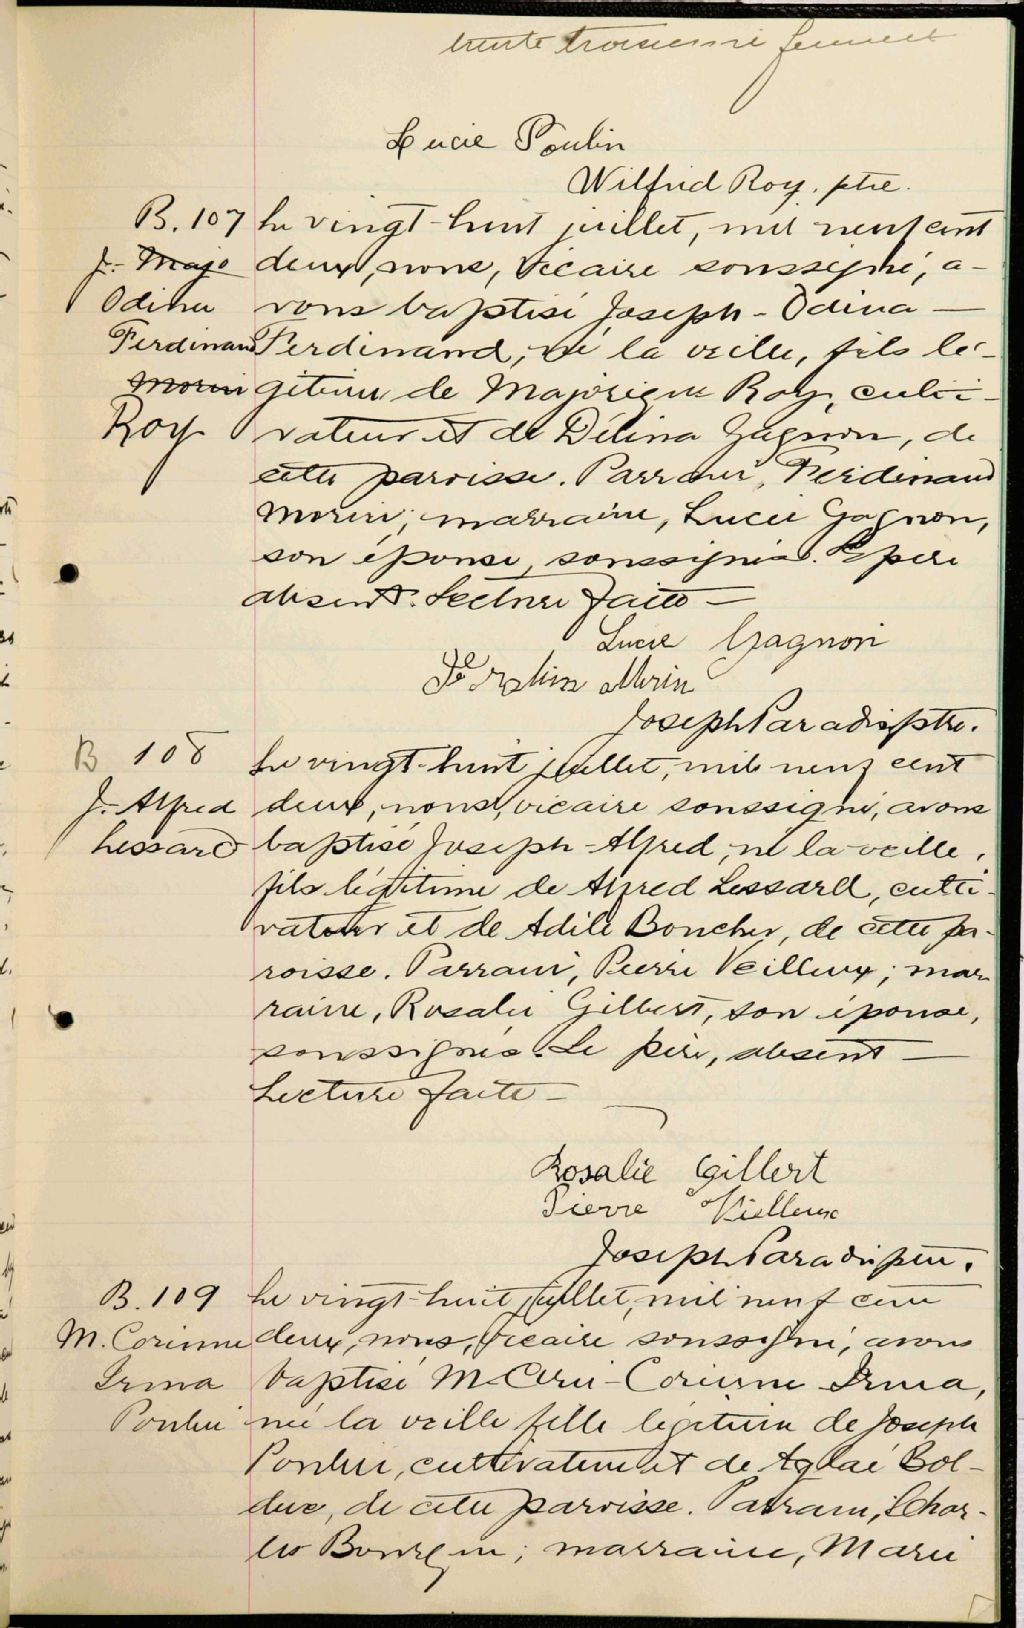 trente troisième feuillet
Lucie Poulin
Wilfrid Roy, ptre.
B. 107 Le vingt-huit juillet, mil neuf cent
J. Majo deux, nous, vicaire soussigné, a-
Odina vons baptisé Joseph-Odina —
Ferdinand Ferdinand, né la veille, fils lé-
Morin gitime de Majorique Roy, culti-
Roy vateur et de Délina Gagnon, de
cette paroisse. Parrain, Ferdinand
Morin; marraine, Lucie Gagnon,
son épouse, soussignés. Le père
absent. Lecture faite —
Lucie Gagnon
Morin
Joseph Paradis ptre.
B 108 Le vingt-huit juillet, mil neuf cent
J. Alfred deux, nous, vicaire soussigné, avons
Lessard baptisé Joseph-Alfred, né la veille,
fils légitime de Alfred Lessard, culti-
vateur et de Adèle Boucher, de cette pa-
roisse. Parrain, Pierre Veilleux; mar-
raine, Rosalie Gilbert, son épouse,
soussignés. Le père, absent —
Lecture faite —
Rosalie Gilbert
Pierre Vielleux
Joseph Paradis ptre.
B. 109 Le vingt-huit juillet, mil neuf cent
M. Corinne deux, nous, vicaire soussigné, avons
Irma baptisé M-Corinne Irma,
Poulin née la veille fille légitime de Joseph
Poulin, cultivateur et de Aglaé Bol-
duc, de cette paroisse. Parrain, Char-
les Bourgin; marraine, Marie